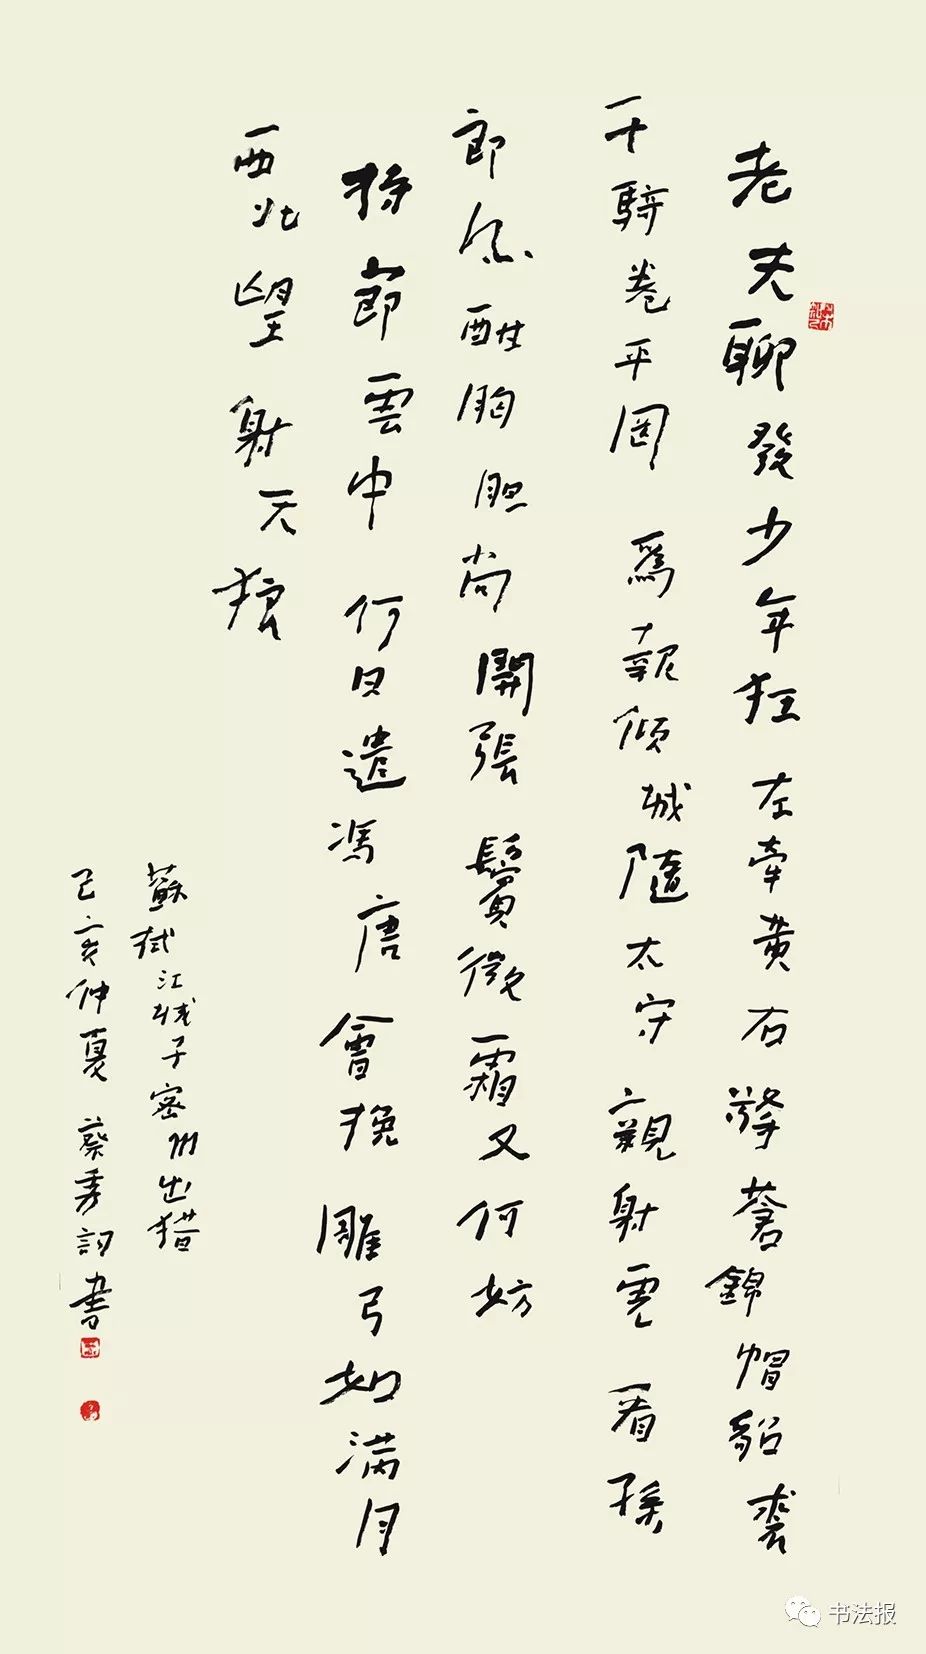 老夫聊發少年狂左牽黄右擎蒼錦帽貂裘
千騎卷平岡爲報傾城隨太守親射虎看孫
郎酣胸胆尚開張鬢微霜又何妨
持節雲中何日遣馮唐會挽雕弓如满月
西北望射天狼
蘇軾江城子密州出猎
己亥仲夏蔡秀詞書
书法报